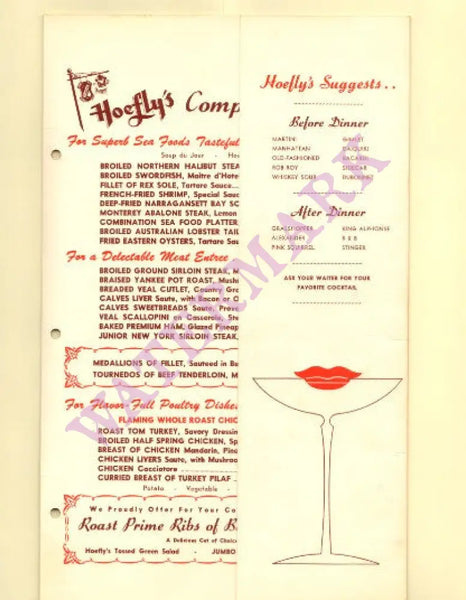 Hoefly's Comp
For Superb Sea Foods Tasteful
Soup du Jour
BROILED NORTHERN HALIBUT STEA
BROILED SWORDFISH, Maitre d'Hote
FILLET OF REX SOLE, Tartare Sauce...
FRENCH-FRIED SHRIMP, Special Sauc
DEEP-FRIED NARRAGANSETT BAY SC
MONTEREY ABALONE STEAK, Lemon
COMBINATION SEA FOOD PLATTER
BROILED AUSTRALIAN LOBSTER TAIL
FRIED EASTERN OYSTERS, Tartare Sau
For a Delectable Meat Entree
BROILED GROUND SIRLOIN STEAK, M
BRAISED YANKEE POT ROAST, Mush
BREADED VEAL CUTLET, Country Gra
CALVES LIVER Saute, with Bacon or O
CALVES SWEETBREADS Saute, Prove
VEAL SCALLOPINI en Casserole, Ste
BAKED PREMIUM HAM, Glazed Pineap
JUNIOR NEW YORK SIRLOIN STEAK,
MEDALLIONS OF FILLET, Sauteed in Bu
TOURNEDOS OF BEEF TENDERLOIN, M
For Flavor-Full Poultry Dishes
FLAMING WHOLE ROAST CHIC
ROAST TOM TURKEY, Savory Dressin
BROILED HALF SPRING CHICKEN, Sp
BREAST OF CHICKEN Mandarin, Pine
CHICKEN LIVERS Saute, with Mushroo
CHICKEN Cacciatore
CURRIED BREAST OF TURKEY PILAF
Potato - Vegetable
We Proudly Offer For Your Co
Roast Prime Ribs of B
A Delicious Cut of Choice
Hoefly's Tossed Green Salad - JUMBO
Hoefly's Suggests . .
Before Dinner
MARTINI GIMLET
MANHATTAN DAIQUIRI
OLD-FASHIONED BACARDI
ROB ROY SIDECAR
WHISKEY SOUR DUBONNET
After Dinner
GRASSHOPPER KING ALPHONSE
ALEXANDER B & B
PINK SQUIRREL STINGER
ASK YOUR WAITER FOR YOUR
FAVORITE COCKTAIL
WATERMARK